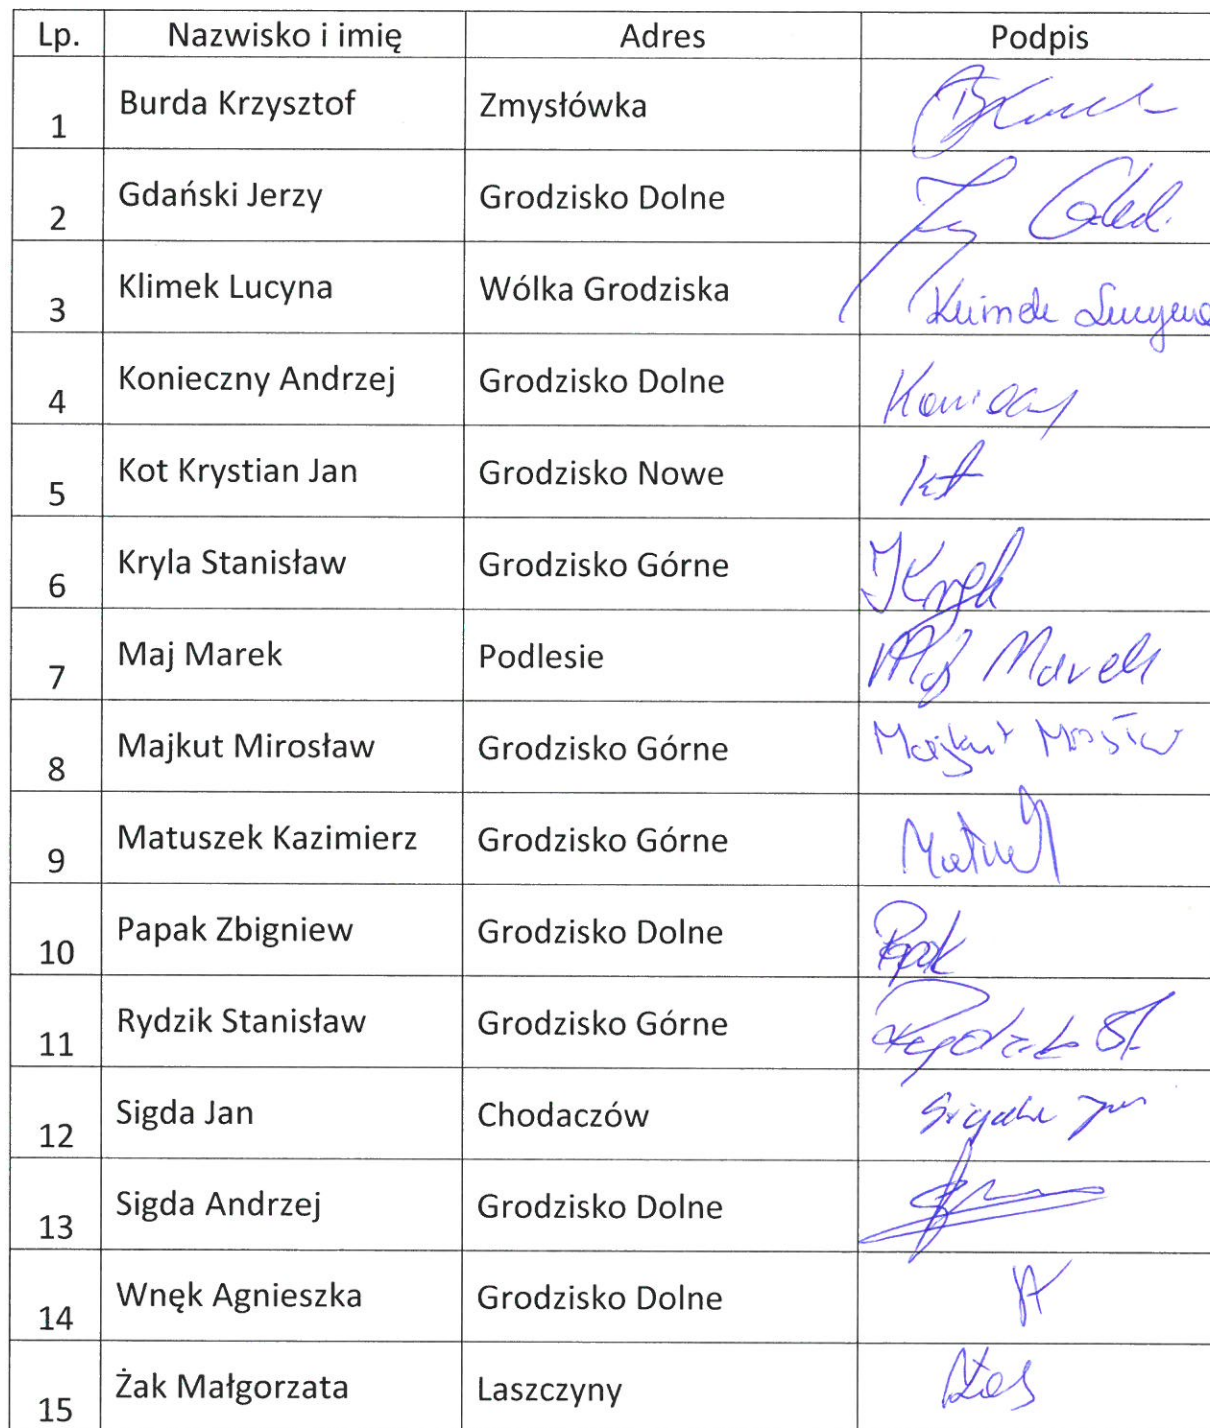 Lp. Nazwisko i imię Adres Podpis
1 Burda Krzysztof Zmysłówka
2 Gdański Jerzy Grodzisko Dolne
3 Klimek Lucyna Wólka Grodziska Klimek Lucyna
4 Konieczny Andrzej Grodzisko Dolne
5 Kot Krystian Jan Grodzisko Nowe Kot
6 Kryla Stanisław Grodzisko Górne
7 Maj Marek Podlesie Maj Marek
8 Majkut Mirosław Grodzisko Górne Majkut
9 Matuszek Kazimierz Grodzisko Górne
10 Papak Zbigniew Grodzisko Dolne Papak
11 Rydzik Stanisław Grodzisko Górne Rydzik St.
12 Sigda Jan Chodaczów Sigda Jan
13 Sigda Andrzej Grodzisko Dolne
14 Wnęk Agnieszka Grodzisko Dolne
15 Żak Małgorzata Laszczyny